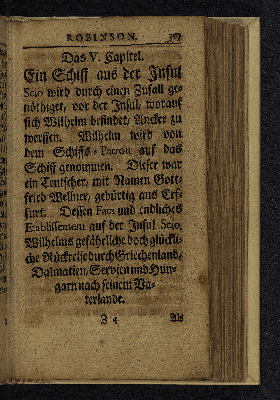 ROBINSON. 359
Das V. Capitel.
Ein Schiff aus der Insul
Scio wird durch einen Zufall ge-
nöthiget, vor der Insul, worauf
sich Wilhelm befindet, Ancker zu
werffen. Wilhelm wird von
dem Schiffs-Patron auf das
Schiff genommen. Dieser war
ein Teutscher, mit Namen Gott-
fried Wellner, gebürtig aus Erf-
furt. Dessen Fata und endliches
Etablissement auf der Insul Scio,
Wilhelms gefährliche doch glückli-
che Rückreise durch Griechenland,
Dalmatien, Servien und Hun-
garn nach seinem Va-
terlande.
Z 4 Als